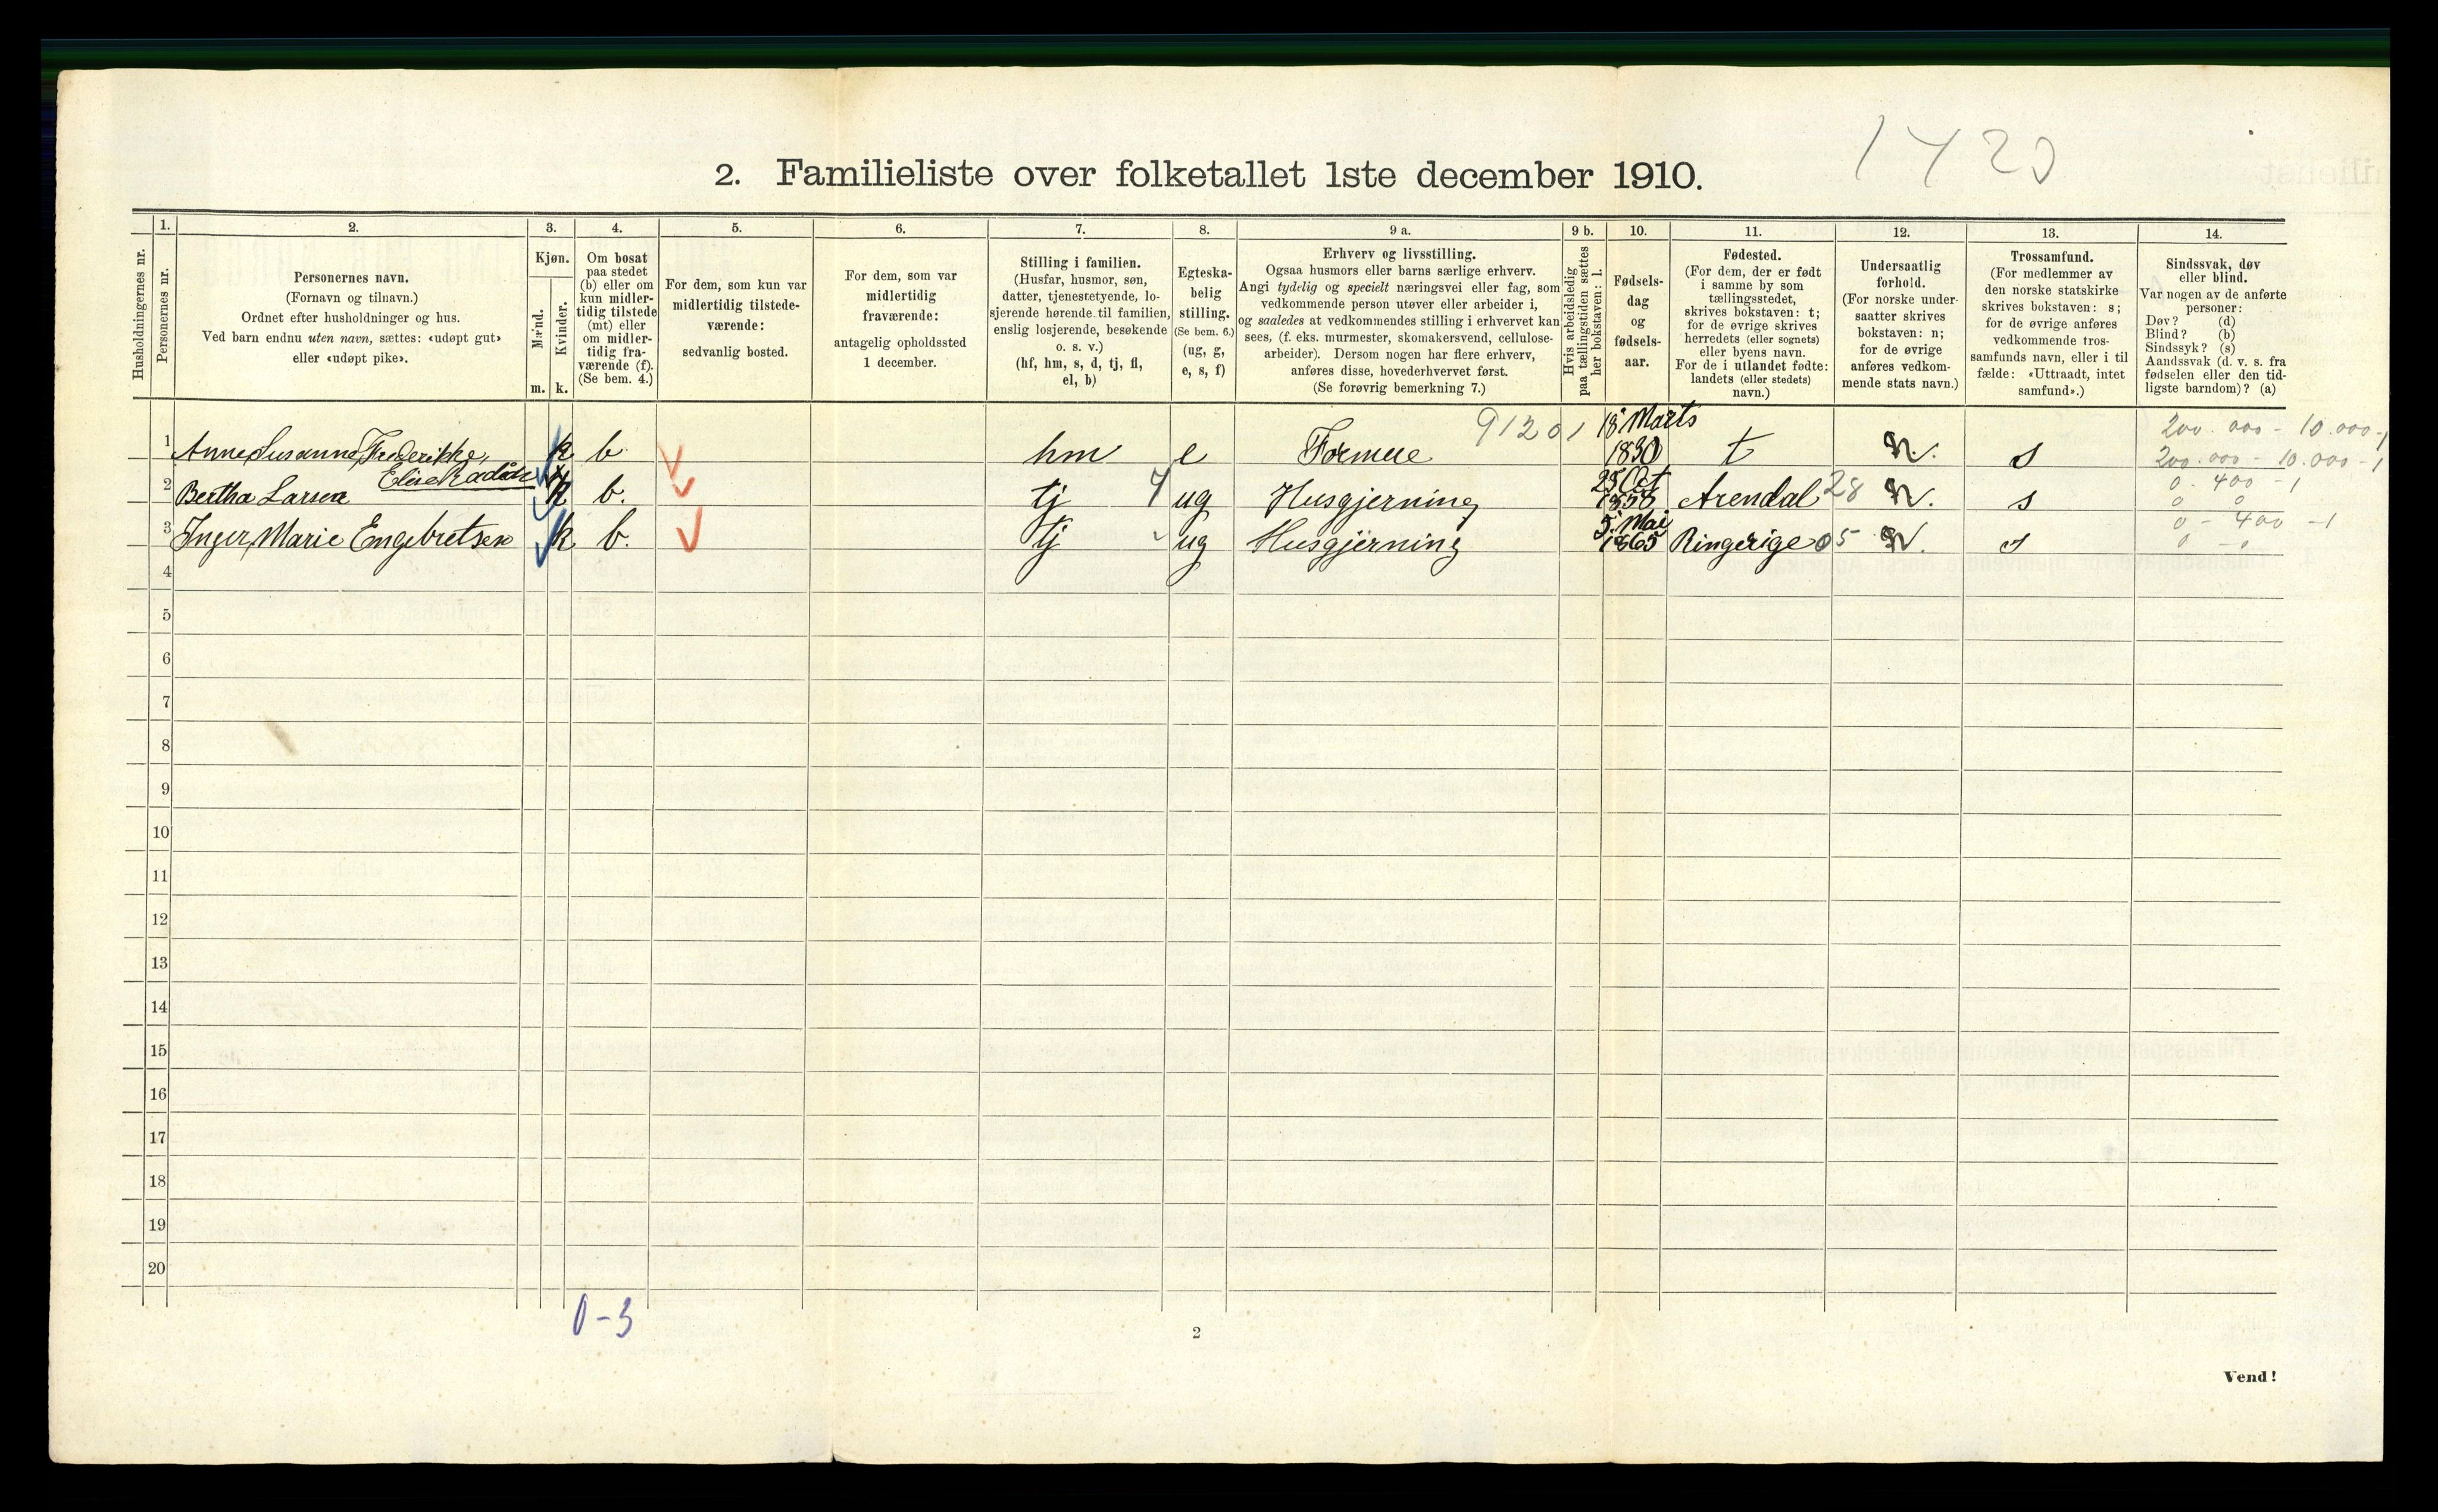 1423
2. Familieliste over folketallet 1ste december 1910.
Husholdningernes nr.
1. Personernes nr.
2. Personernes navn.
(Fornavn og tilnavn.)
Ordnet efter husholdninger og hus.
Ved barn endnu uten navn, sættes: «udøpt gut»
eller «udøpt pike».
3. Kjøn.
Mænd. m.
Kvinder. k.
4. Om bosat
paa stedet
(b) eller om
kun midler-
tidig tilstede
(mt) eller
om midler-
tidig fra-
værende (f).
(Se bem. 4.)
5. For dem, som kun var
midlertidig tilstede-
værende:
sedvanlig bosted.
6. For dem, som var
midlertidig
fraværende:
antagelig opholdssted
1 december.
7. Stilling i familien.
(Husfar, husmor, søn,
datter, tjenestetyende, lo-
sjerende hørende til familien,
enslig losjerende, besøkende
o. s. v.)
(hf, hm, s, d, tj, fl,
el, b)
8. Egteska-
belig
stilling.
(Se bem. 6.)
(ug, g,
e, s, f)
9 a. Erhverv og livsstilling.
Ogsaa husmors eller barns særlige erhverv.
Angi tydelig og specielt næringsvei eller fag, som
vedkommende person utøver eller arbeider i,
og saaledes at vedkommendes stilling i erhvervet kan
sees, (f. eks. murmester, skomakersvend, cellulose-
arbeider). Dersom nogen har flere erhverv,
anføres disse, hovederhvervet først.
(Se forøvrig bemerkning 7.)
9 b. Hvis arbeidsledig
paa tællingstiden sættes
her bokstaven: l.
10. Fødsels-
dag
og
fødsels-
aar.
11. Fødested.
(For dem, der er født
i samme by som
tællingsstedet,
skrives bokstaven: t;
for de øvrige skrives
herredets (eller sognets)
eller byens navn.
For de i utlandet fødte:
landets (eller stedets)
navn.)
12. Undersaatlig
forhold.
(For norske under-
saatter skrives
bokstaven: n;
for de øvrige
anføres vedkom-
mende stats navn.)
13. Trossamfund.
(For medlemmer av
den norske statskirke
skrives bokstaven: s;
for de øvrige anføres
vedkommende tros-
samfunds navn, eller i til
fælde: «Uttraadt, intet
samfund».)
14. Sindssvak, døv
eller blind.
Var nogen av de anførte
personer:
Døv? (d)
Blind? (b)
Sindssyk? (s)
Aandssvak (d. v. s. fra
fødselen eller den tid-
ligste barndom)? (a)
91201 18 Marts 200.000 - 10.000 - 1
1 Anne Susanne Frederikke, k b hm e Formue 1830 t n. s 200.000 - 10.000 - 1
Elise 25 Oct 0 - 400 - 1
2 Bertha Larsen k b. tj ug Husgjerning Arendal 28 n. s 0 0
5. Mai 0 - 400 - 1
3 Inger Marie Engebretsen k b. tj ug Husgjerning 1865 Ringerige 05 n. s 0 - 0
4
5
6
7
8
9
10
11
12
13
14
15
16
17
18
19
20
0-3
2
Vend!